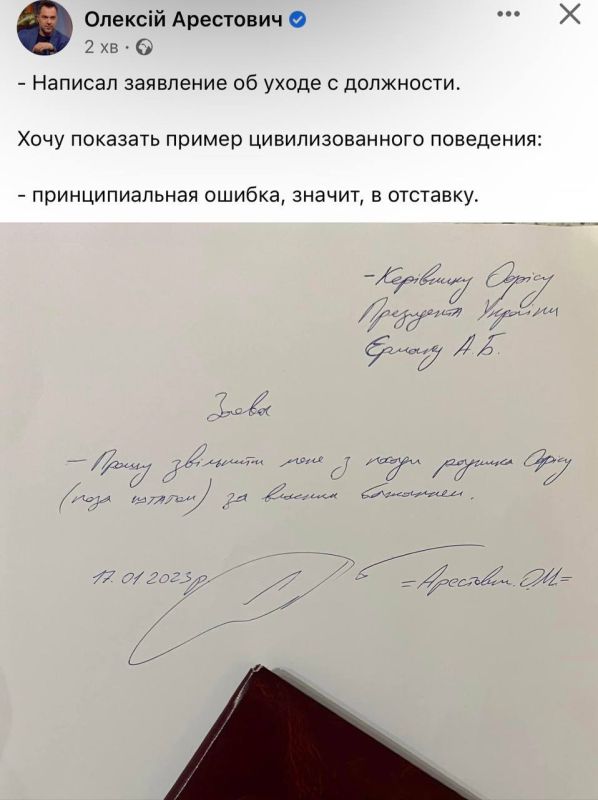 Олексій Арестович
2 хв ·
- Написал заявление об уходе с должности.
Хочу показать пример цивилизованного поведения:
- принципиальная ошибка, значит, в отставку.
- Керівнику Офісу
Президента України
Єрмаку А.Б.
Заява
- Прошу звільнити мене з посади радника Офісу
(поза штатом) за власним бажанням.
17.01.2023р
= Арестович О.М. =